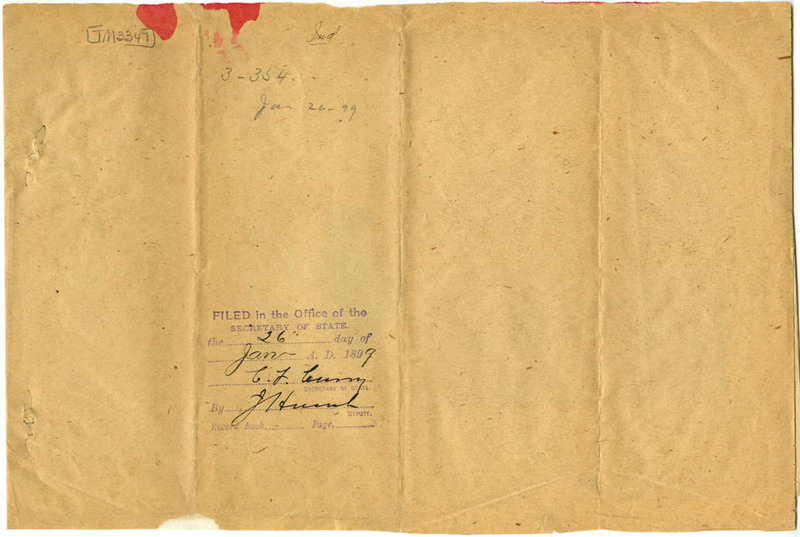 TM3349
3-354
Jan 26-99
FILED in the Office of the
SECRETARY OF STATE.
the 26 day of
Jan A. D. 1899
C. F. Curry
SECRETARY OF STATE.
By J Hoesch
DEPUTY.
Record Book Page